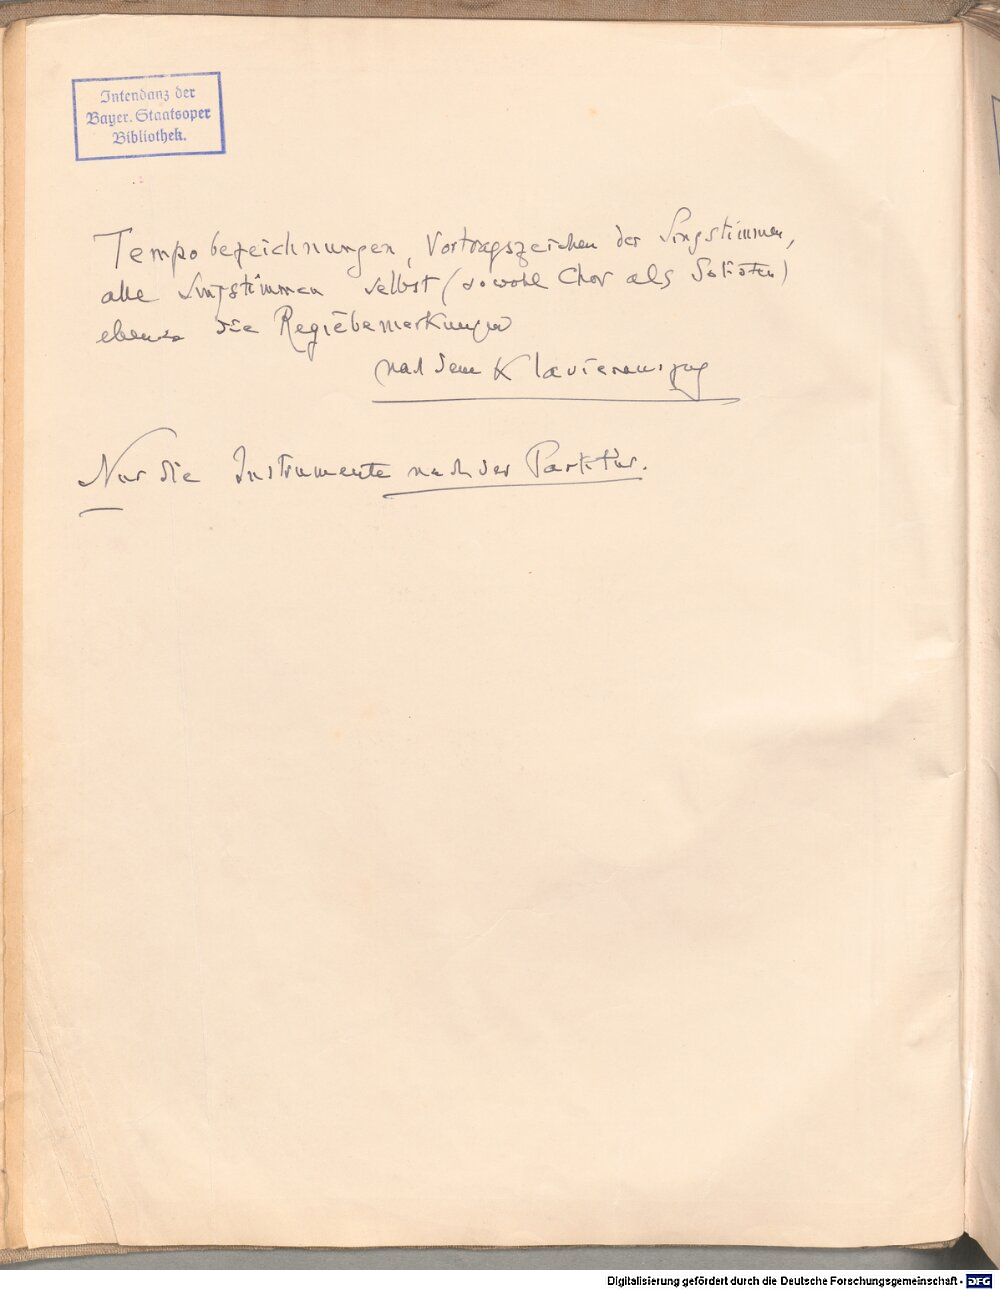 Intendanz der
Bayer. Staatsoper
Bibliothek.
Tempobezeichnungen, Vortragszeichen der Singstimmen,
alle Singstimmen selbst (sowohl Chor als Solisten)
ebenso die Regiebemerkungen
nach dem Klavierauszug
Nur die Instrumente nach der Partitur.
Digitalisierung gefördert durch die Deutsche Forschungsgemeinschaft - DFG